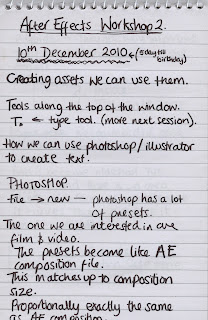 After Effects Workshop 2.
10th December 2010 ← (5 days till birthday)
Creating assets we can use them.
Tools along the top of the window.
T. ← type tool. (more next session).
How we can use photoshop/illustrator
to create text.
PHOTOSHOP.
File → new — photoshop has a lot
of presets.
The one we are interested in are
film & video.
The presets become like AE
composition file.
This matches up to composition
size.
Proportionally exactly the same
as AE composition